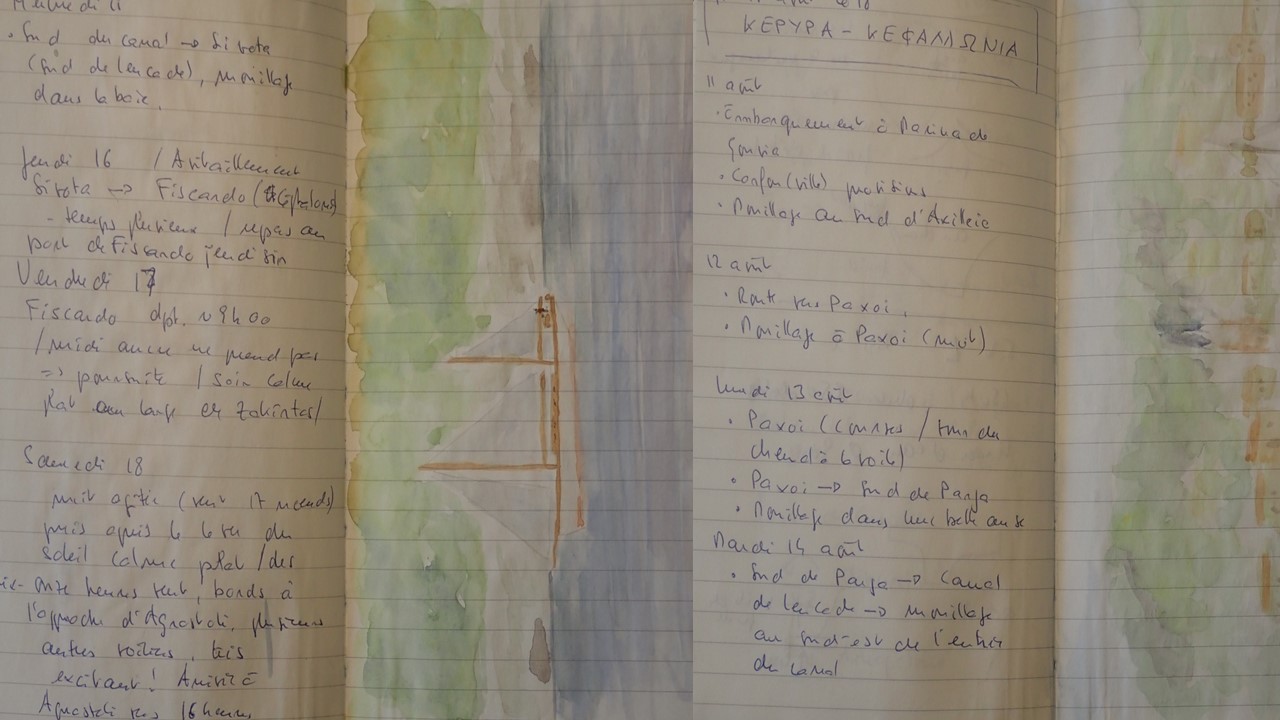 KEPYPA - KEΦAΛΛΩNIA
11 août
• Embarquement à Marina de
Gouvia
• Corfou (ville) provisions
• Mouillage au sud d'Axilleio
12 août
• Route vers Paxoi.
• Mouillage à Paxoi (nuit)
lundi 13 août
• Paxoi (courses / tour du
chend à la voile)
• Paxoi → Sud de Parga
• Mouillage dans une belle anse
Mardi 14 août
• Sud de Parga → Canal
de Leucade → mouillage
au sud-est de l'entrée
du canal
• Sud du canal → Sivota
(sud de Leucade), mouillage
dans la baie.
Jeudi 16 / Avitaillement
Sivota → Fiscardo (Céphalonie)
- temps pluvieux / repas au
port de Fiscardo jeudi soir
Vendredi 17
Fiscardo dpt. ~ 9h00
/ midi ancre ne prend pas
=> poursuite / soir calme
plat au large et Zakintos /
Samedi 18
nuit agitée (vent 17 nœuds)
puis après le lever du
soleil calme plat / dès
onze heures vent, bords à
l'approche d'Agostoli, plusieurs
autres voiliers, très
excitant! Arrivée à
Agostoli vers 16 heures